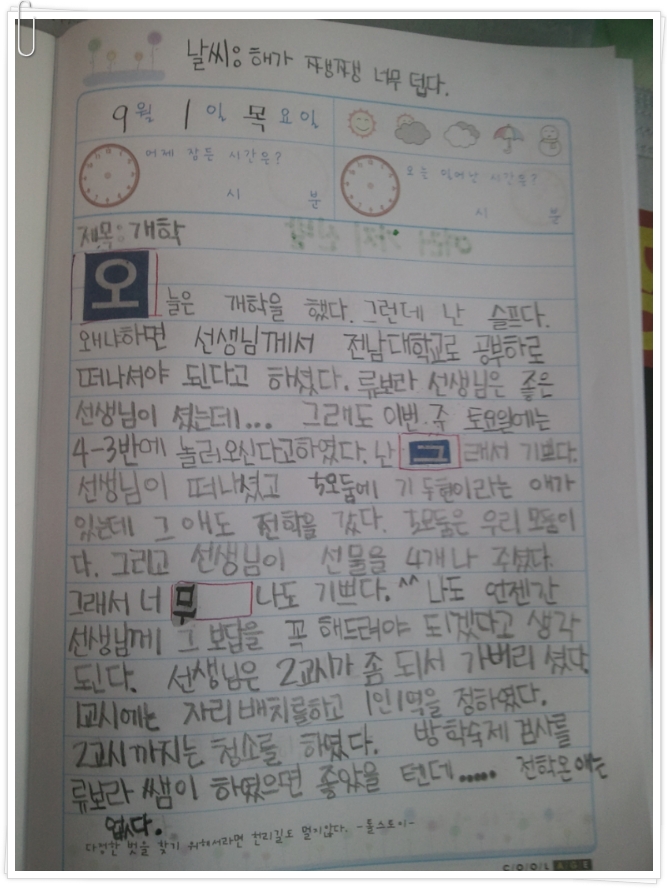 날씨: 해가 쨍쨍 너무 덥다.
9월 1일 목요일
어제 잠든 시간은?
오늘 일어난 시간은?
시 분
시 분
제목: 개학
오늘은 개학을 했다. 그런데 난 슬프다.
왜냐하면 선생님께서 전남대학교로 공부하로
떠나셔야 된다고 하셨다. 류보라 선생님은 좋은
선생님이 셨는데... 그래도 이번 주 토요일에는
4-3반에 놀러오신다고하였다. 난 그래서 기쁘다.
선생님이 떠나셨고 5모둠에 기두현이라는 애가
있는데 그 애도 전학을 갔다. 5모둠은 우리 모둠이
다. 그리고 선생님이 선물을 4개나 주셨다.
그래서 너무 나도 기쁘다.^^ 나도 언젠간
선생님께 그 보답을 꼭 해드려야 되겠다고 생각
된다. 선생님은 2교시가 좀 되서 가버리 셨다.
1교시에는 자리 배치를하고 1인1역을 정하였다.
2교시까지는 청소를 하였다. 방학숙제 검사를
류보라 쌤이 하였으면 좋았을 텐데..... 전학온 애는
없다.
다정한 벗을 찾기 위해서라면 천리길도 멀지않다. -톨스토이-
COOLAGE